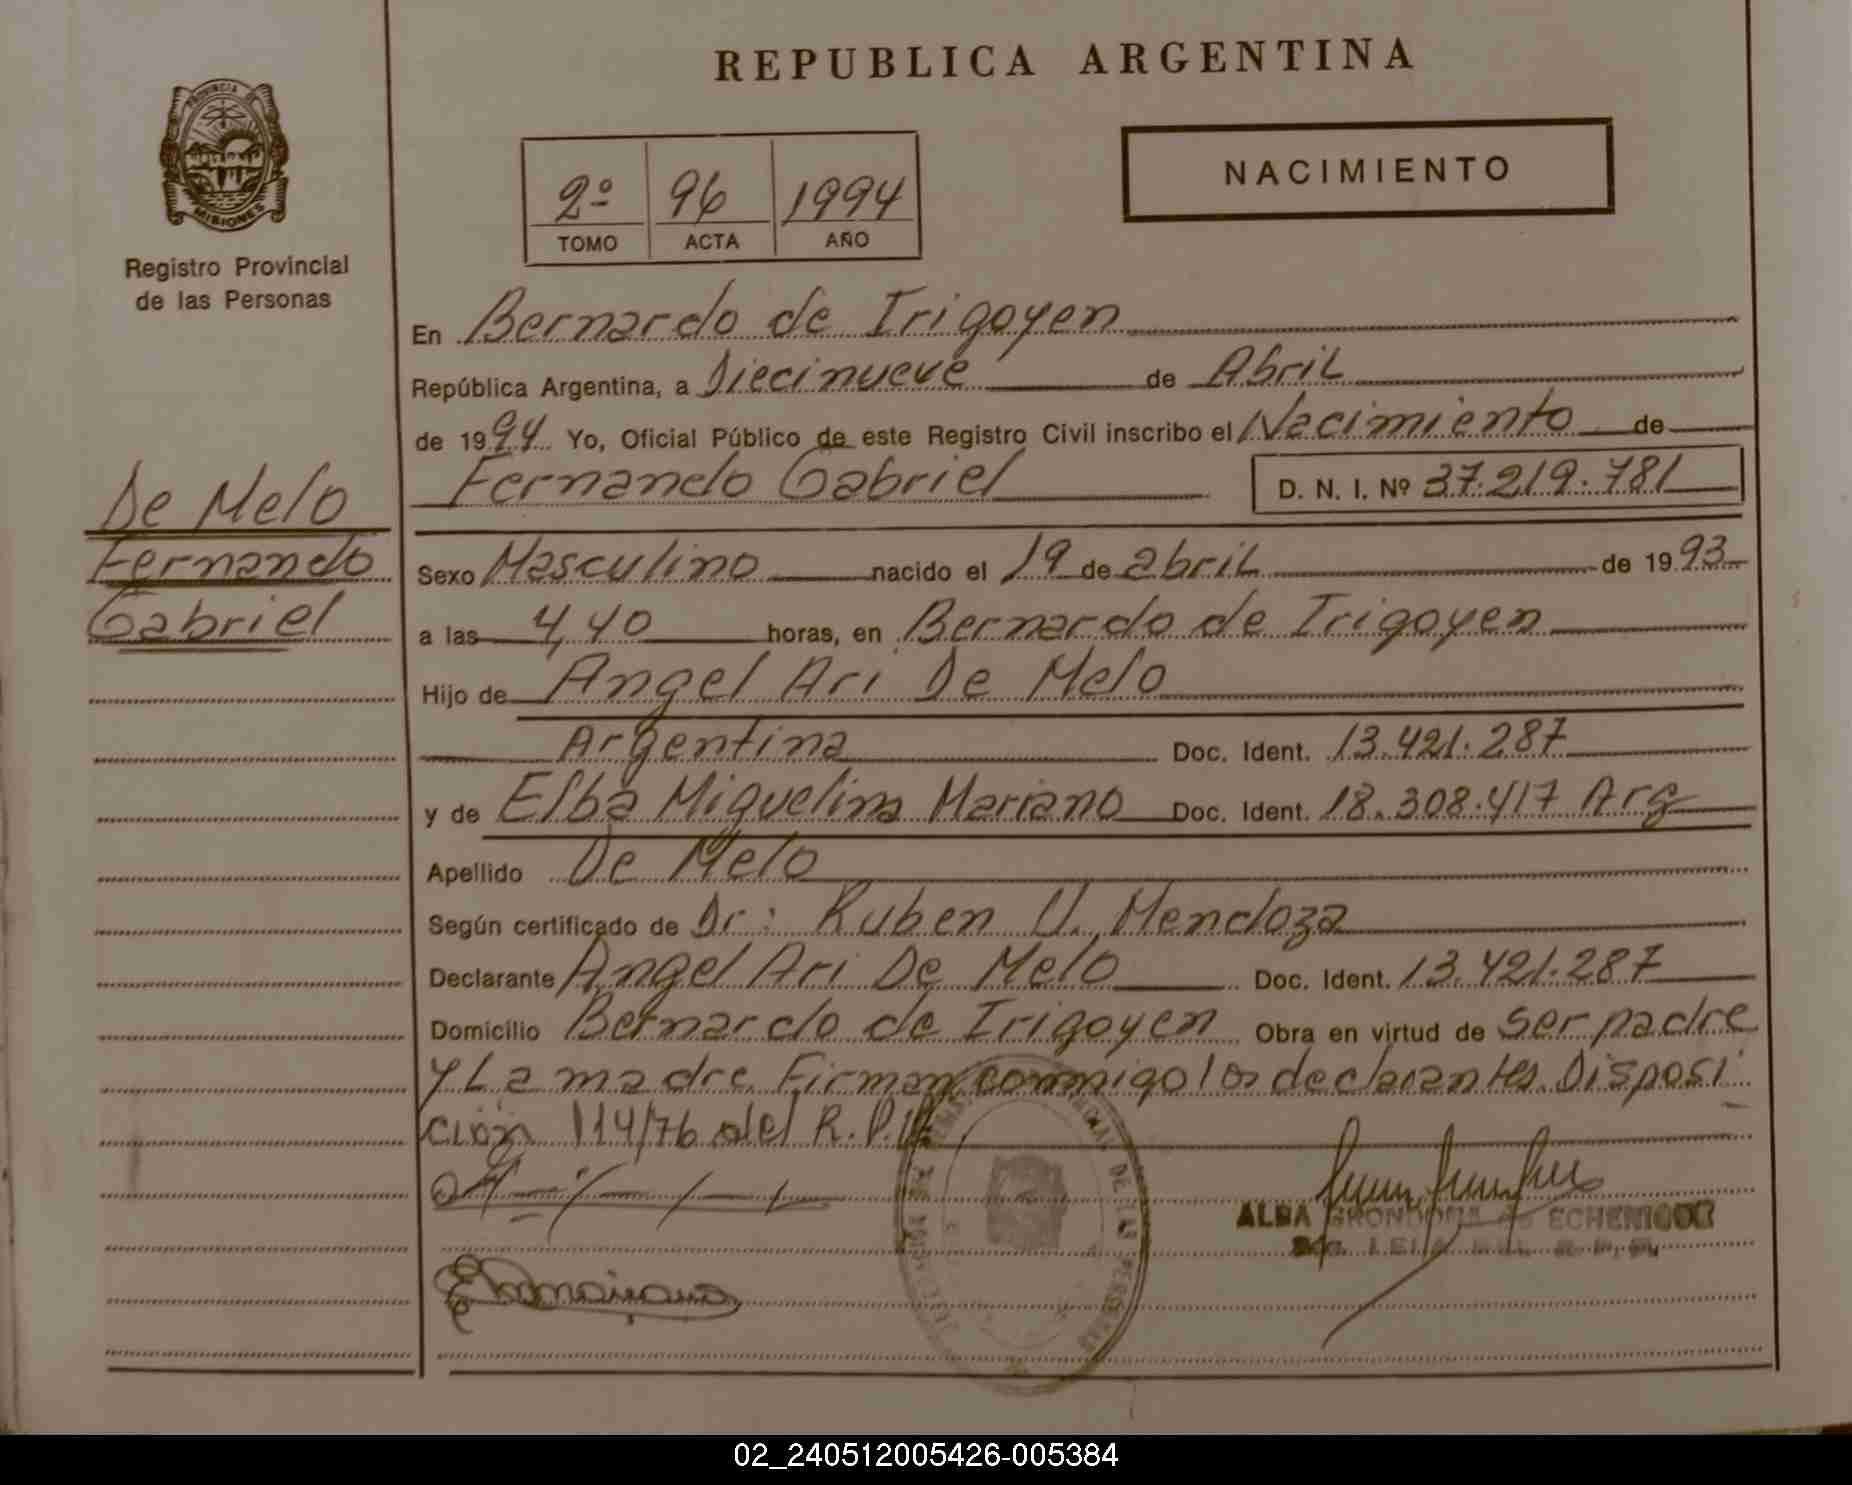 REPUBLICA ARGENTINA
PROVINCIA DE
MISIONES
Registro Provincial
de las Personas
2º 96 1994
TOMO ACTA AÑO
NACIMIENTO
En Bernardo de Irigoyen
República Argentina, a Diecinueve de Abril
de 1994 Yo, Oficial Público de este Registro Civil inscribo el Nacimiento de
Fernando Gabriel D. N. I. Nº 37.219.781
De Melo
Fernando
Gabriel
Sexo Masculino nacido el 19 de abril de 1993
a las 4,40 horas, en Bernardo de Irigoyen
Hijo de Angel Ari De Melo
Argentina Doc. Ident. 13.421.287
y de Elba Miguelina Mariano Doc. Ident. 18.308.417 Arg
Apellido De Melo
Según certificado de Dr: Ruben U. Mendoza
Declarante Angel Ari De Melo Doc. Ident. 13.421.287
Domicilio Bernardo de Irigoyen Obra en virtud de ser padre
y La madre Firman conmigo los declarantes Disposi
ción 114/76 del R.P.
ALBA GRONDONA DE ECHENIQUE
02_240512005426-005384